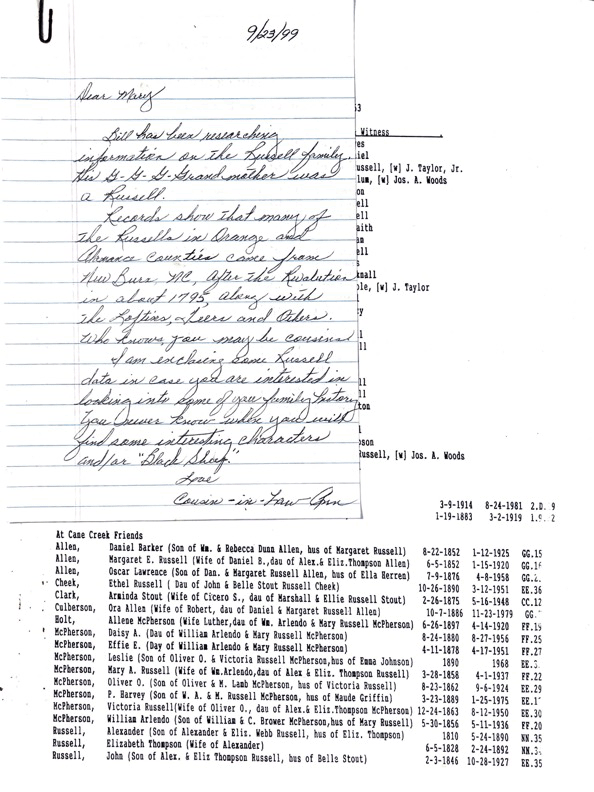 9/23/99
Dear Mary
Bill has been researching
information on the Russell family.
His G-G-G-Grandmother was
a Russell.
Records show that many of
the Russells in Orange and
Almance counties came from
New Burn, NC, after the Revolution
in about 1795, along with
the Loftins, and Others.
Who knows, you may be cousins
I am enclosing some Russell
data in case you are interested in
looking into some of you family history
You never know when you will
find some interesting characters
and/or "Black Sheep."
Love
Cousin-in-Law Ann
53
Witness
es
iel
ussell, [w] J. Taylor, Jr.
lum, [w] Jos. A. Woods
on
ell
ell
aith
m
ell
s
mall
ole, [w] J. Taylor
y
l
ll
ll
ll
ton
l
son
Russell, [w] Jos. A. Woods
3-9-1914 8-24-1981 2.D. 9
1-19-1883 3-2-1919 2
At Cane Creek Friends
Allen, Daniel Barker (Son of Wm. & Rebecca Dunn Allen, hus of Margaret Russell) 8-22-1852 1-12-1925 GG.15
Allen, Margaret E. Russell (Wife of Daniel B.,dau of Alex.& Eliz.Thompson Allen) 6-5-1852 1-15-1920 GG.16
Allen, Oscar Lawrence (Son of Dan. & Margaret Russell Allen, hus of Ella Herren) 7-9-1876 4-8-1958 GG.
Cheek, Ethel Russell ( Dau of John & Belle Stout Russell Cheek) 10-26-1890 3-12-1951 EE.36
Clark, Arminda Stout (Wife of Cicero S., dau of Marshall & Ellie Russell Stout) 2-26-1875 5-16-1948 CC.12
Culberson, Ora Allen (Wife of Robert, dau of Daniel & Margaret Russell Allen) 10-7-1886 11-23-1979 GG.
Holt, Allene McPherson (Wife Luther,dau of Wm. Arlendo & Mary Russell McPherson) 6-26-1897 4-14-1920 FF.19
McPherson, Daisy A. (Dau of William Arlendo & Mary Russell McPherson) 8-24-1880 8-27-1956 FF.25
McPherson, Effie E. (Day of William Arlendo & Mary Russell McPherson) 4-11-1878 4-17-1951 FF.27
McPherson, Leslie (Son of Oliver O. & Victoria Russell McPherson,hus of Emma Johnson) 1890 1968 EE.
McPherson, Mary A. Russell (Wife of Wm.Arlendo,dau of Alex & Eliz. Thompson Russell) 3-28-1858 4-1-1937 FF.22
McPherson, Oliver O. (Son of Oliver & M. Lamb McPherson, hus of Victoria Russell) 8-23-1862 9-6-1924 EE.29
McPherson, P. Harvey (Son of W. A. & M. Russell McPherson, hus of Maude Griffin) 3-23-1889 1-25-1975 EE.
McPherson, Victoria Russell(Wife of Oliver O., dau of Alex.& Eliz.Thompson McPherson) 12-24-1863 8-12-1950 EE.30
McPherson, William Arlendo (Son of William & C. Brower McPherson,hus of Mary Russell) 5-30-1856 5-11-1936 FF.20
Russell, Alexander (Son of Alexander & Eliz. Webb Russell, hus of Eliz. Thompson) 1810 5-24-1890 NN.35
Russell, Elizabeth Thompson (Wife of Alexander) 6-5-1828 2-24-1892 NN.
Russell, John (Son of Alex. & Eliz Thompson Russell, hus of Belle Stout) 2-3-1846 10-28-1927 EE.35